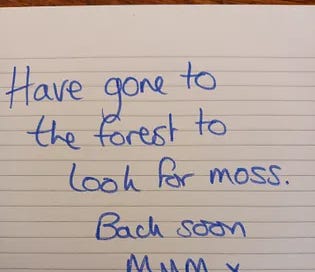 Have gone to
the forest to
look for moss.
Back soon
MUM x